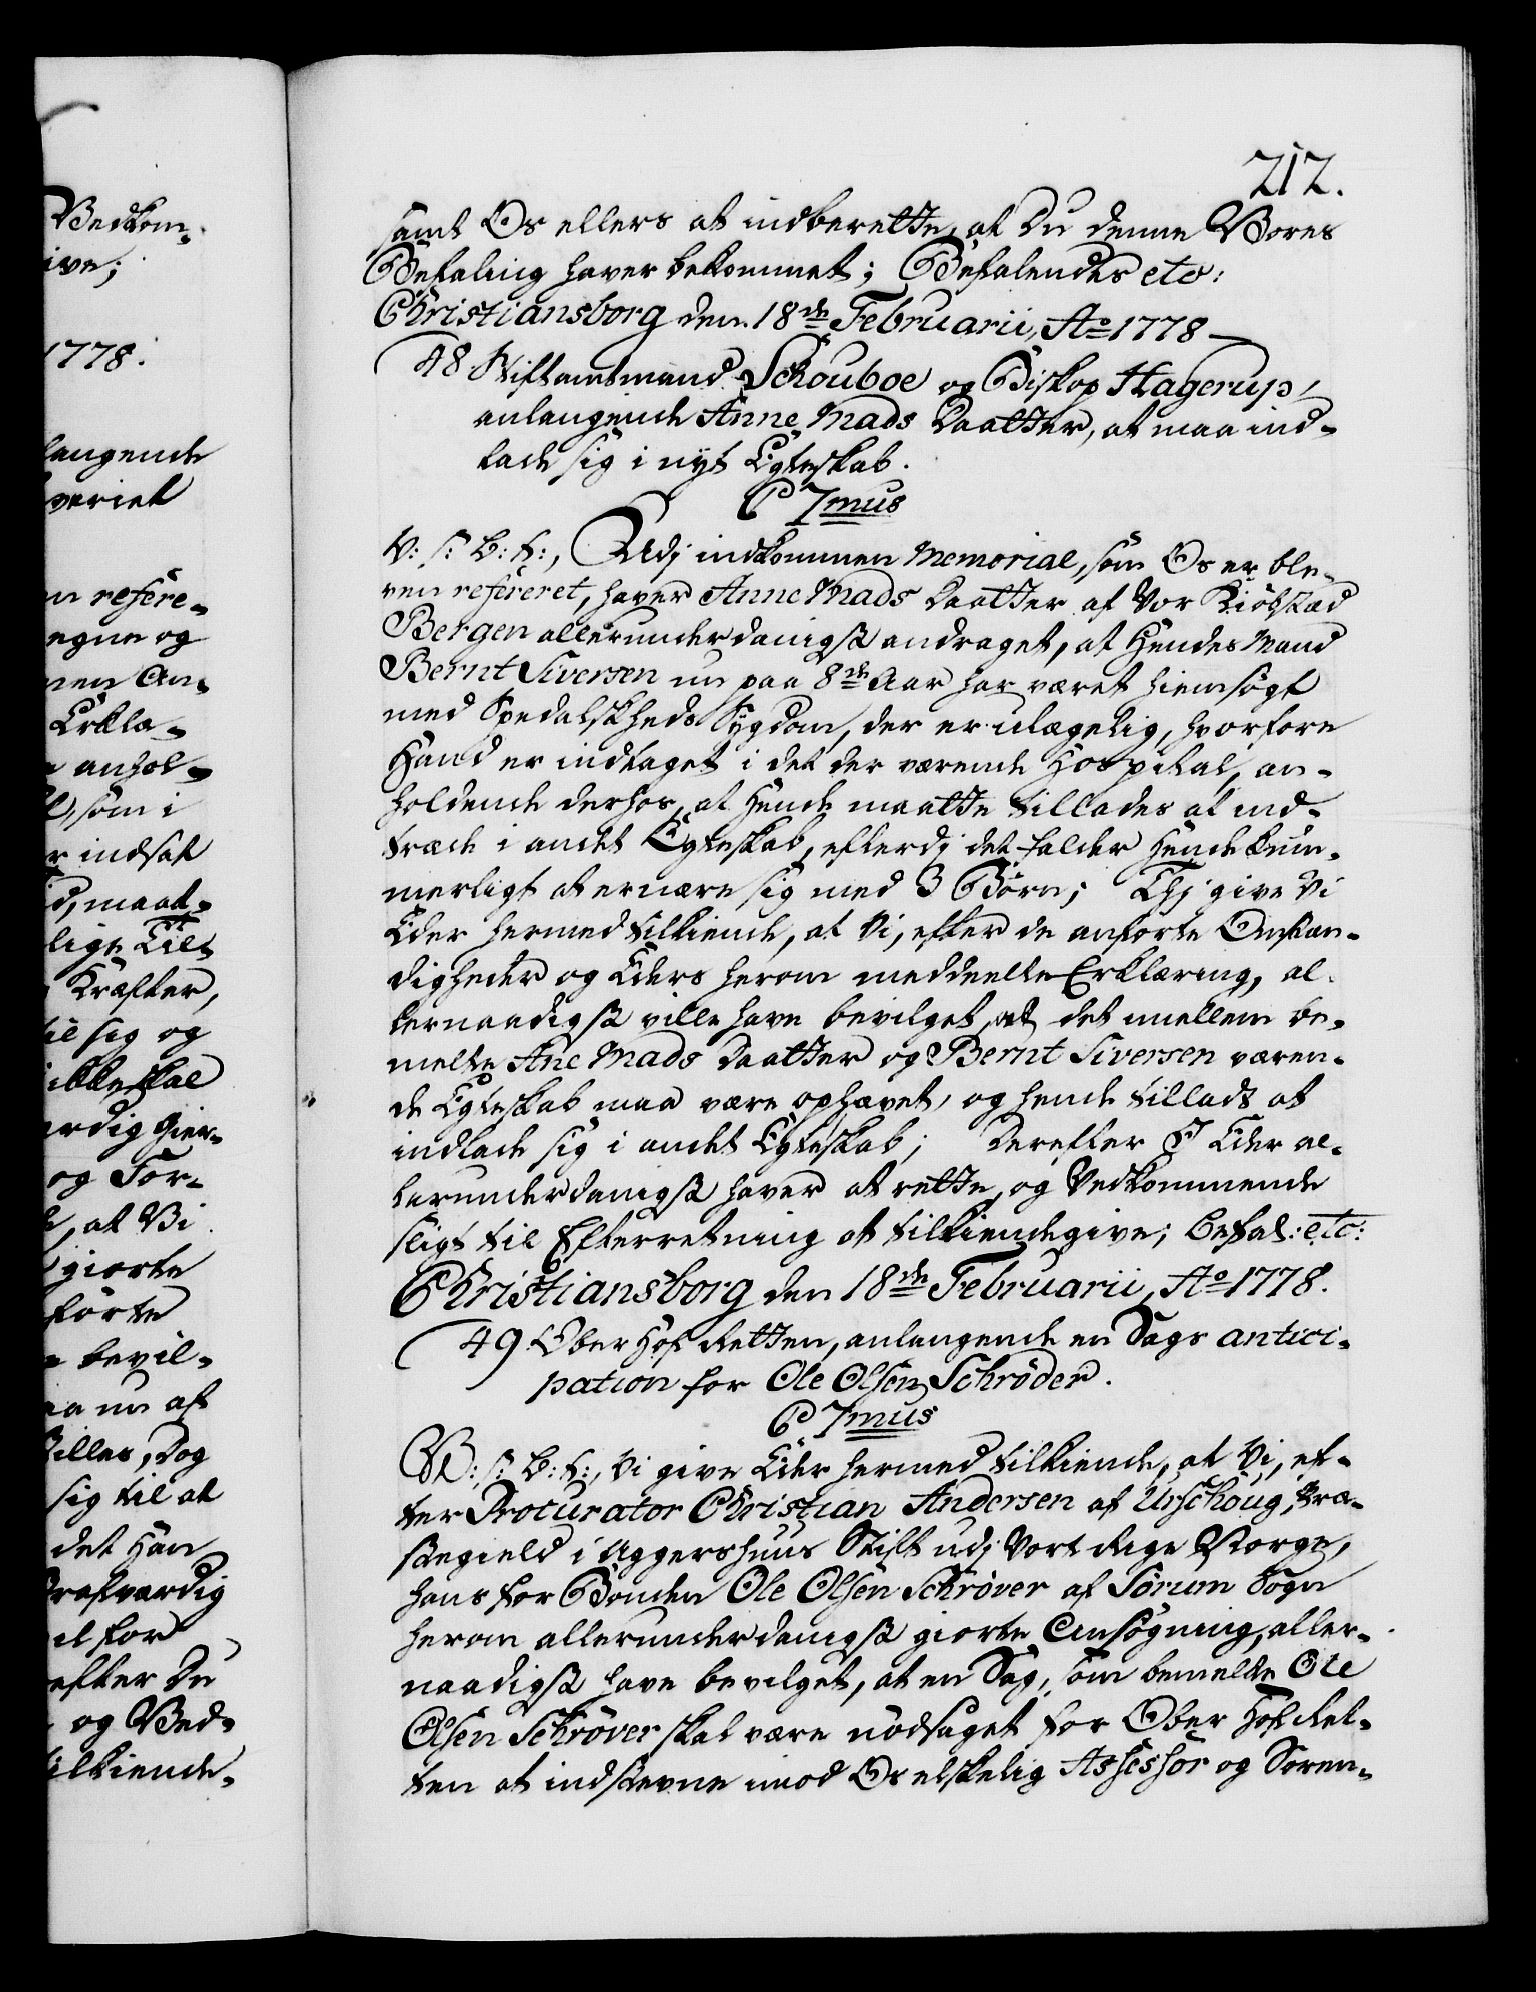 212.
samt Os ellers at indberette, at Du denne Vores
Befaling haver bekommet; Befalendes etc:
Christiansborg den 18de Februarii, Ao 1778
48 Stiftamtmand Schouboe og Biskop Hagerup,
anlangende Anne Mads Daatter, at maa ind-
lade sig i nyt Egteskab.
C 7mus
V: S: B: T:, Udj indkommen Memorial, som Os er ble-
ven refereret, haver Anne Mads Daatter af Vor Kiöbstæd
Bergen allerunderdanigst andraget, at Hendes Mand
Bernt Siversen nu paa 8de Aar har været hiemsögt
med Spedalskheds Sygdom, der er ulægelig, hvorfore
Hand er indtaget i det der værende Hospital, an-
holdende derhos, at Hende maatte tillades at ind-
træde i andet Egteskab, efterdj det falder Hende küm-
merligt at ernære sig med 3 Börn; Thj give Vi
Eder hermed tilkiende, at Vi, efter de anförte Omstæn-
digheder og Eders herom meddeelte Erklæring, al-
lernaadigst ville have bevilget, at det imellem be-
melte Ane Mads Daatter og Bernt Siversen væren-
de Egteskab maa være ophævet, og hende tilladt at
indlade sig i andet Egteskab; Derefter I Eder al-
lerunderdanigst haver at rette, og Vedkommende
sligt til Efterretning at tilkiendegive; Befal: etc:
Christiansborg den 18de Februarii, Ao 1778.
49 Ober Hof Retten, anlangende en Sags antici-
pation for Ole Olsen Schröder.
C 7mus
V: S: B: T:, Vi give Eder hermed tilkiende, at Vi, ef-
ter Procurator Christian Andersen af Urschoug, Præ-
stegield i Aggershuus Stift udj Vort Rige Norge,
hans for Bonden Ole Olsen Schröver af Sörum Sogn
herom allerunderdanigst giorte Ansögning, aller-
naadigst have bevilget, at en Sag, som bemelte Ole
Olsen Schröver skal være nödsaget for Ober Hof Ret-
ten at indstevne imod Os elskelig Assessor og Soren-
Vedkom-
ive;
1778.
langende
veriet
en refere-
egne og
men An-
Erklæ-
anhol-
som i
r indsat
d, maat-
lige Til-
Kræfter,
til sig og
ikke skal
ærdig Gier-
og For-
, at Vi
giorte
förte
bevil-
aa nu af
stilles, Dog
sig til at
det Han
Strafværdig
el for
efter Du
og Ved-
tilkiende-